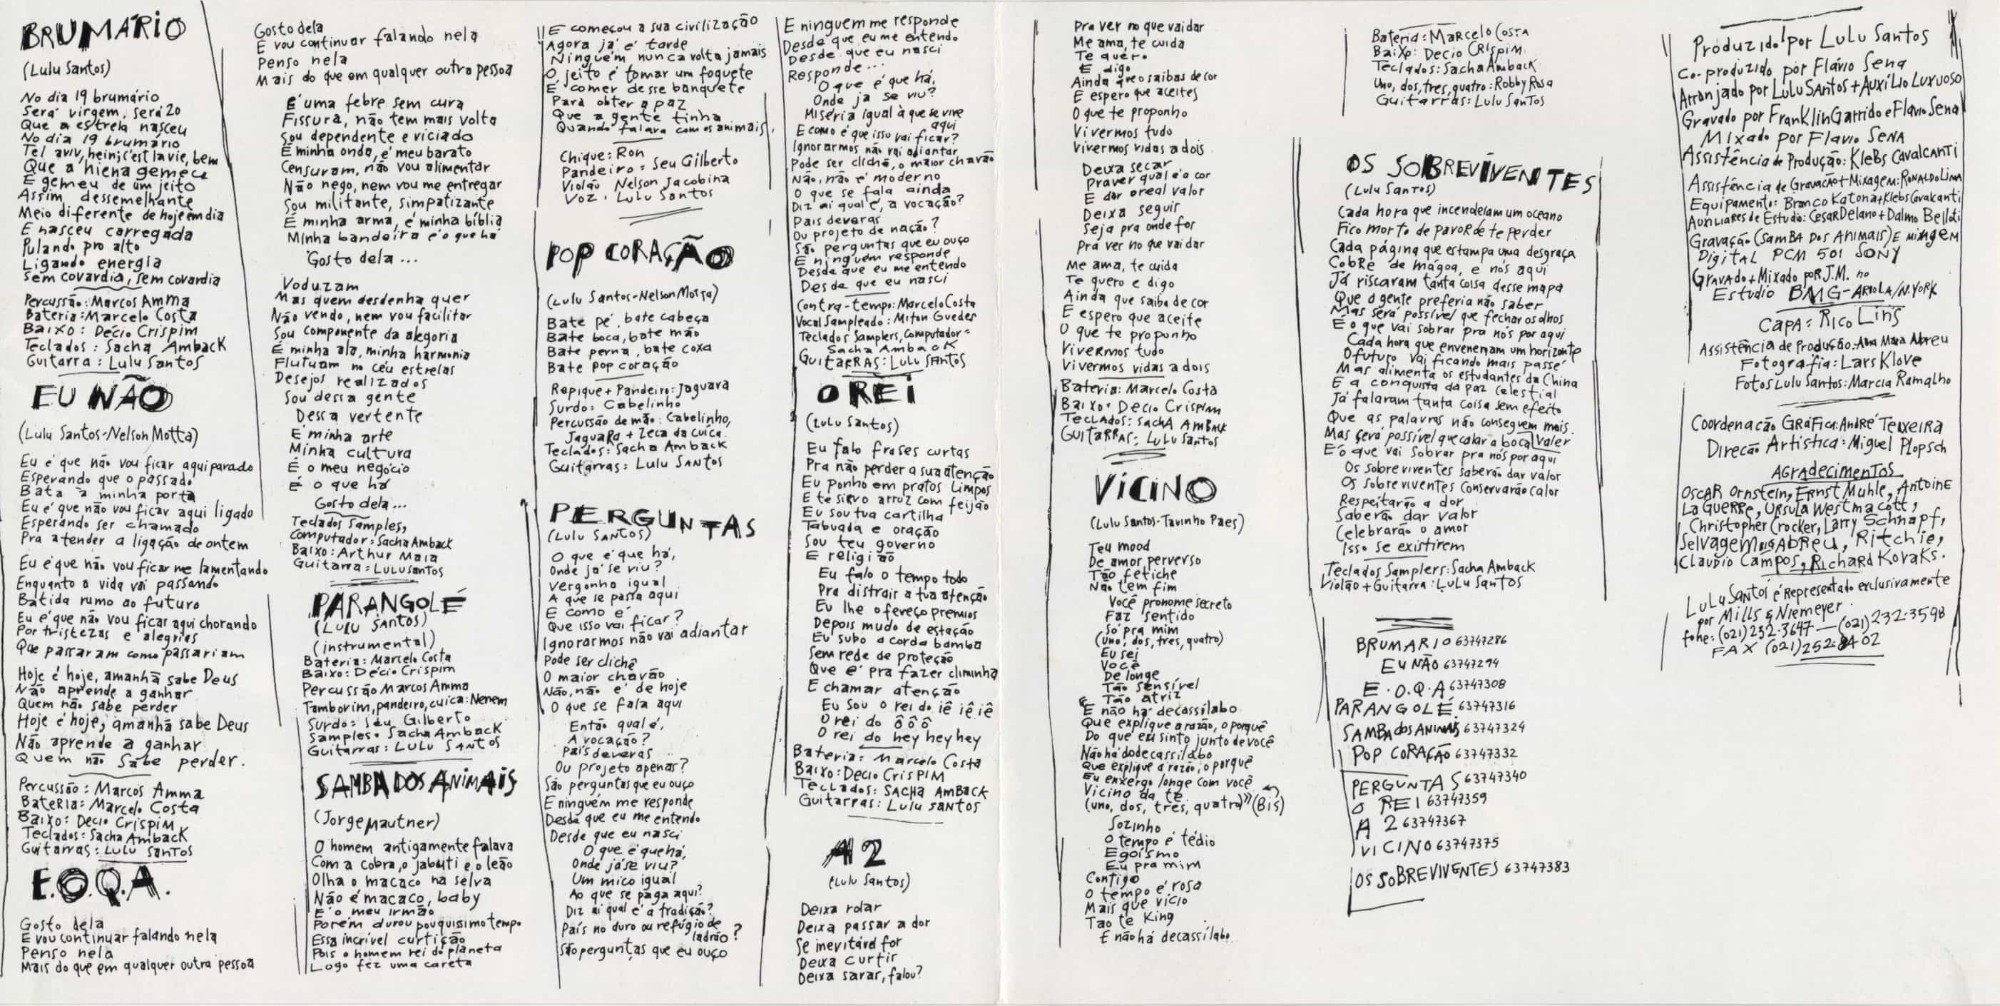 BRUMÁRIO
(Lulu Santos)
No dia 19 brumário
Será virgem, será 20
Que a estrela nasceu
No dia 19 brumário
Tel aviv, hein, c'est la vie, bem
Que a hiena gemeu
E gemeu de um jeito
Assim dessemelhante
Meio diferente de hoje em dia
E nasceu carregada
Pulando pro alto
Ligando energia
Sem covardia, sem covardia
Percussão: Marcos Amma
Bateria: Marcelo Costa
Baixo: Décio Crispim
Teclados: Sacha Amback
Guitarra: Lulu Santos
EU NÃO
(Lulu Santos-Nelson Motta)
Eu é que não vou ficar aqui parado
Esperando que o passado
Bata à minha porta
Eu é que não vou ficar aqui ligado
Esperando ser chamado
Pra atender a ligação de ontem
Eu é que não vou ficar me lamentando
Enquanto a vida vai passando
Batida rumo ao futuro
Eu é que não vou ficar aqui chorando
Por tristezas e alegrias
Que passaram como passariam
Hoje é hoje, amanhã sabe Deus
Não aprende a ganhar
Quem não sabe perder
Hoje é hoje, amanhã sabe Deus
Não aprende a ganhar
Quem não sabe perder.
Percussão: Marcos Amma
Bateria: Marcelo Costa
Baixo: Decio Crispim
Teclados: Sacha Amback
Guitarras: Lulu Santos
E.O.Q.A.
Gosto dela
E vou continuar falando nela
Penso nela
Mais do que em qualquer outra pessoa
Gosto dela
E vou continuar falando nela
Penso nela
Mais do que em qualquer outra pessoa
É uma febre sem cura
Fissura, não tem mais volta
Sou dependente e viciado
É minha onda, é meu barato
Censuram, não vou alimentar
Não nego, nem vou me entregar
Sou militante, simpatizante
É minha arma, é minha bíblia
Minha bandeira é o que há
Gosto dela ...
Voduzam
Mas quem desdenha quer
Não vendo, nem vou facilitar
Sou componente da alegoria
É minha ala, minha harmonia
Flutuam no céu estrelas
Desejos realizados
Sou dessa gente
Dessa vertente
É minha arte
Minha cultura
É o meu negócio
É o que há
Gosto dela...
Teclados Samples,
Computador: Sacha Amback
Baixo: Arthur Maia
Guitarra: Lulu Santos
PARANGOLÉ
(Lulu Santos)
(instrumental)
Bateria: Marcelo Costa
Baixo: Décio Crispim
Percussão Marcos Amma
Tamborim, pandeiro, cuica: Nenem
Surdo: Seu Gilberto
Samples: Sacha Amback
Guitarras: Lulu Santos
SAMBA DOS ANIMAIS
(Jorge Mautner)
O homem antigamente falava
Com a cobra, o jabuti e o leão
Olha o macaco na selva
Não é macaco, baby
É o meu irmão
Porém durou pouquíssimo tempo
Essa incrível curtição
Pois o homem rei do planeta
Logo fez uma careta
E começou a sua civilização
Agora já é tarde
Ninguém nunca volta jamais
O jeito é tomar um foguete
E comer desse banquete
Para obter a paz
Que a gente tinha
Quando falava com os animais.
Chique: Ron
Pandeiro: Seu Gilberto
Violão Nelson Jacobina
Voz: Lulu Santos
POP CORAÇÃO
(Lulu Santos-Nelson Motta)
Bate pé, bate cabeça
Bate boca, bate mão
Bate perna, bate coxa
Bate pop coração
Repique + Pandeiro: Jaguara
Surdo: Cabelinho
Percussão de mão: Cabelinho,
Jaguara + Zeca da cuica.
Teclados: Sacha Amback
Guitarras: Lulu Santos
PERGUNTAS
(Lulu Santos)
O que é que há,
Onde já se viu?
Vergonha igual
A que se passa aqui
E como é
Que isso vai ficar?
Ignorarmos não vai adiantar
Pode ser clichê
O maior chavão
Não, não é de hoje
O que se fala aqui
Então qual é,
A vocação?
País deveras
Ou projeto apenas?
São perguntas que eu ouço
E ninguém me responde
Desde que eu me entendo
Desde que eu nasci
O que é que há,
Onde já se viu?
Um mico igual
Ao que se paga aqui?
Diz aí qual é a tradição?
País no duro ou refúgio de
ladrão?
São perguntas que eu ouço
E ninguem me responde
Desde que eu me entendo
Desde que eu nasci
Responde...
O que é que há,
Onde já se viu?
Miséria igual à que se vive
aqui
E como é que isso vai ficar?
Ignorarmos não vai adiantar
Pode ser clichê, o maior chavão
Não, não é moderno
O que se fala ainda
Diz aí qual é, a vocação?
País deveras
Ou projeto de nação?
São perguntas que eu ouço
E ninguém responde
Desde que eu me entendo
Desde que eu nasci
Contra-tempo: Marcelo Costa
Vocal Sampleado: Milton Guedes
Teclados Samplers, Computador:
Sacha Amback
Guitarras: Lulu Santos
O REI
(Lulu Santos)
Eu falo frases curtas
Pra não perder a sua atenção
Eu ponho em pratos limpos
E te sirvo arroz com feijão
Eu sou tua cartilha
Tabuada e oração
Sou teu governo
E religião
Eu falo o tempo todo
Pra distrair a tua atenção
Eu lhe ofereço premios
Depois mudo de estação
Eu subo a corda bamba
Sem rede de proteção
Que é pra fazer climinha
E chamar atenção
Eu sou o rei do iê iê iê
O rei do ôôô
O rei do hey hey hey
Bateria: Marcelo Costa
Baixo: Decio Crispim
Teclados: Sacha Amback
Guitarras: Lulu Santos
A2
(Lulu Santos)
Deixa rolar
Deixa passar a dor
Se inevitável for
Deixa curtir
Deixa sarar, falou?
Pra ver no que vai dar
Me ama, te cuida
Te quero
E digo
Ainda que o saibas de cor
E espero que aceites
O que te proponho
Vivermos tudo
Vivermos vidas a dois
Deixa secar
Pra ver qual é a cor
E dar o real valor
Deixa seguir
Seja pra onde for
Pra ver no que vai dar
Me ama, te cuida
Te quero e digo
Ainda que saiba de cor
E espero que aceite
O que te proponho
Vivermos tudo
Vivermos vidas a dois
Bateria: Marcelo Costa
Baixo: Decio Crispim
Teclados: Sacha Amback
Guitarras: Lulu Santos
VICINO
(Lulu Santos-Tavinho Paes)
Teu mood
De amor perverso
Tão fetiche
Não tem fim
Você pronome secreto
Faz sentido
Só pra mim
(uno, dos, tres, quatro)
Eu sei
Você
De longe
Tão sensível
Tão atriz
E não há decassílabo
Que explique a razão, o porquê
Do que eu sinto junto de você
Não há dodecassílabo
Que explique a razão, o porquê
Eu enxergo longe com você
Vicino da te
(uno, dos, tres, quatro)" (Bis)
Sozinho
O tempo é tédio
Egoísmo
Eu pra mim
Contigo
O tempo é rosa
Mais que vício
Tao te King
E não há decassílabo.
Bateria: Marcelo Costa
Baixo: Decio Crispim
Teclados: Sacha Amback
Uno, dos, tres, quatro: Robby Rosa
Guitarras: Lulu Santos
OS SOBREVIVENTES
(Lulu Santos)
Cada hora que incendeiam um oceano
Fico morto de pavor de te perder
Cada página que estampa uma desgraça
Cobre de mágoa, e nós aqui
Já riscaram tanta coisa desse mapa
Que a gente preferia não saber
Mas será possível que fechar os olhos
É o que vai sobrar pra nós por aqui
Cada hora que envenenam um horizonte
O futuro vai ficando mais passé
Mas alimenta os estudantes da China
E a conquista da paz celestial
Já falaram tanta coisa sem efeito
Que as palavras não conseguem mais
Mas será possível que calar a boca
É o que vai sobrar pra nós por aqui
Os sobreviventes saberão dar valor
Os sobreviventes conservarão calor
Respeitarão a dor
Saberão dar valor
Celebrarão o amor
Isso se existirem
Teclados Samplers: Sacha Amback
Violão + Guitarra: Lulu Santos
BRUMARIO 63747286
EU NÃO 63747294
E.O.Q.A 63747308
PARANGOLÉ 63747316
SAMBA dos ANIMAIS 63747324
POP CORAÇÃO 63747332
PERGUNTAS 63747340
O REI 63747359
A 2 63747367
VICINO 63747375
OS SOBREVIVENTES 63747383
Produzido por Lulu Santos
Co-produzido por Flávio Sena
Arranjado por Lulu Santos + Auxílio Luxuoso
Gravado por Franklin Garrido e Flavio Sena
Mixado por Flavio Sena
Assistência de Produção: Klebs Cavalcanti
Assistência de Gravação + Mixagem: Ronaldo Lima
Equipamento: Branco Katona + Klebs Cavalcanti
Auxiliares de Estudio: Cesar Delano + Dalmo Belloti
Gravação (Samba dos Animais) E mixagem
Digital PCM 501 SONY
Gravado + Mixado por J.M. no
Estudio BMG-Ariola/N.York
Capa: Rico Lins
Assistência de Produção: Ana Mara Abreu
Fotografia: Lars Klove
Fotos Lulu Santos: Marcia Ramalho
Coordenacão Gráfica: André Teixeira
Direcão Artistica: Miguel Plopsch
Agradecimentos
Oscar Ornstein, Ernst Muhle, Antoine
La Guerre, Ursula Westmacott,
Christopher Crocker, Larry Schnapf,
Selvagem Abreu, Ritchie,
Claudio Campos, Richard Kovaks.
Lulu Santos é Representado exclusivamente
por Mills & Niemeyer.
fone: (021) 232-3647 — (021) 232-3598
FAX (021) 252 8402